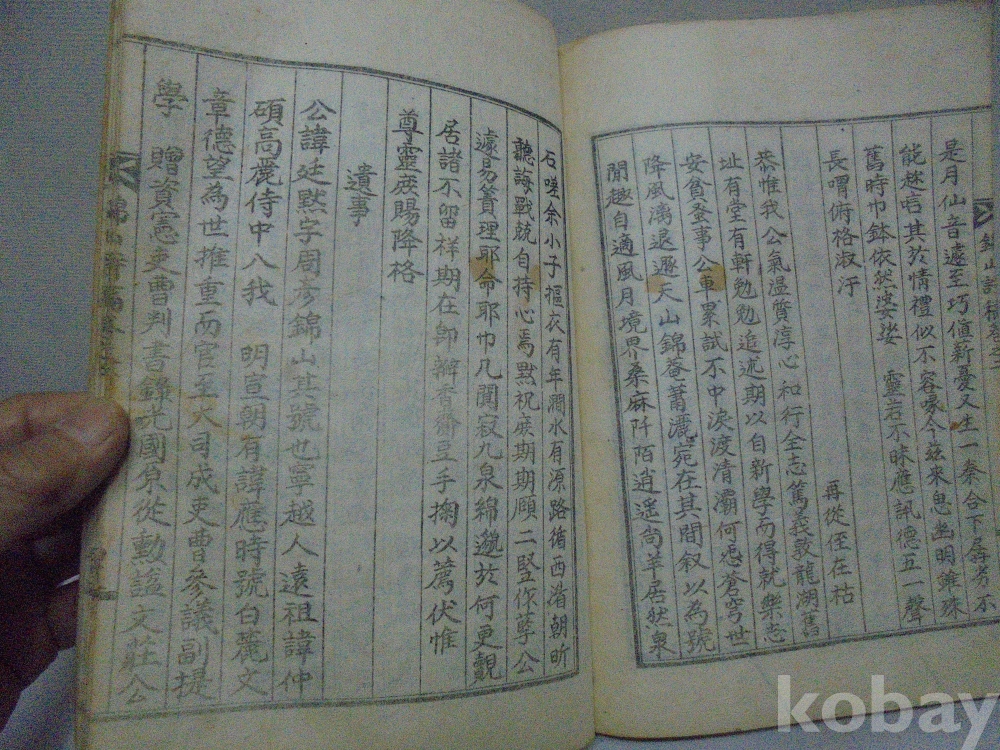 是月仙音遽至巧值新憂又生一秦合下倂芳不
能趂唁其於情禮似不容喙今玆來思幽明雖殊
舊時巾鉢依然婆娑 靈若不昧應訊德五一聲
長嘒俯格淑汙
再從侄在枯
恭惟我公氣温質淳心和行全志篤義敦龍湖舊
址有堂有軒勉勉追述期以自新學而得就樂志
安貧蚉事公車累試不中淚渡清灞何恐蒼穹世
降風漓退遯天山錦菴蕭灑宛在其間叙以為號
閒趣自適風月境界桑麻阡陌逍遥尙羊居然泉
石嗟余小子摳衣有年澗水有源路循西湝朝昕
聽誨戰兢自持心焉默祝庶期期頥二竪作孼公
遽易簀理耶命耶巾几闃寂九泉綿邈於何更覿
居諸不留祥期在卽瓣香齋豆手掬以薦伏惟
尊靈庶賜降格
遺事
公諱廷黙字周彦錦山其號也寧越人遠祖諱仲
碩高麗侍中入我 明宣朝有諱應時號白麓文
章德望為世推重而官至大司成吏曹參議副提
學 贈資憲吏曹判書錄光國原從勳謚文莊公